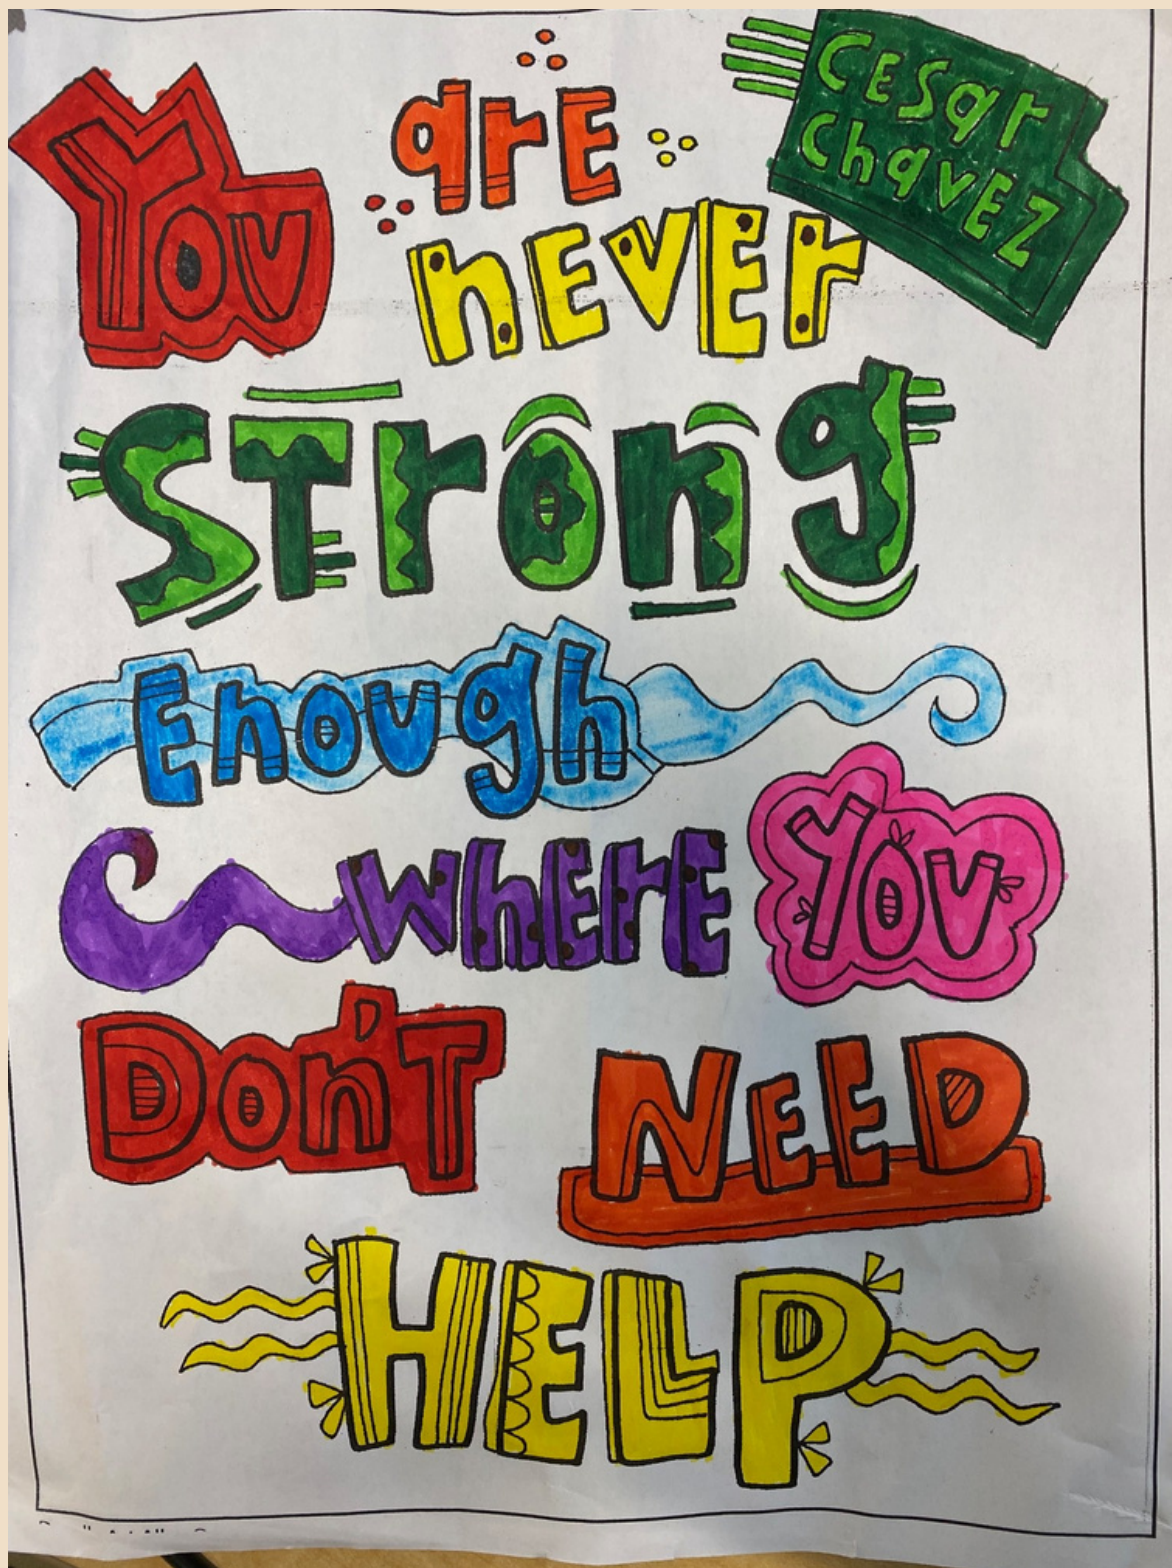 You are never
Cesar
Chavez
Strong
Enough
where You
Don't NEED
HELP